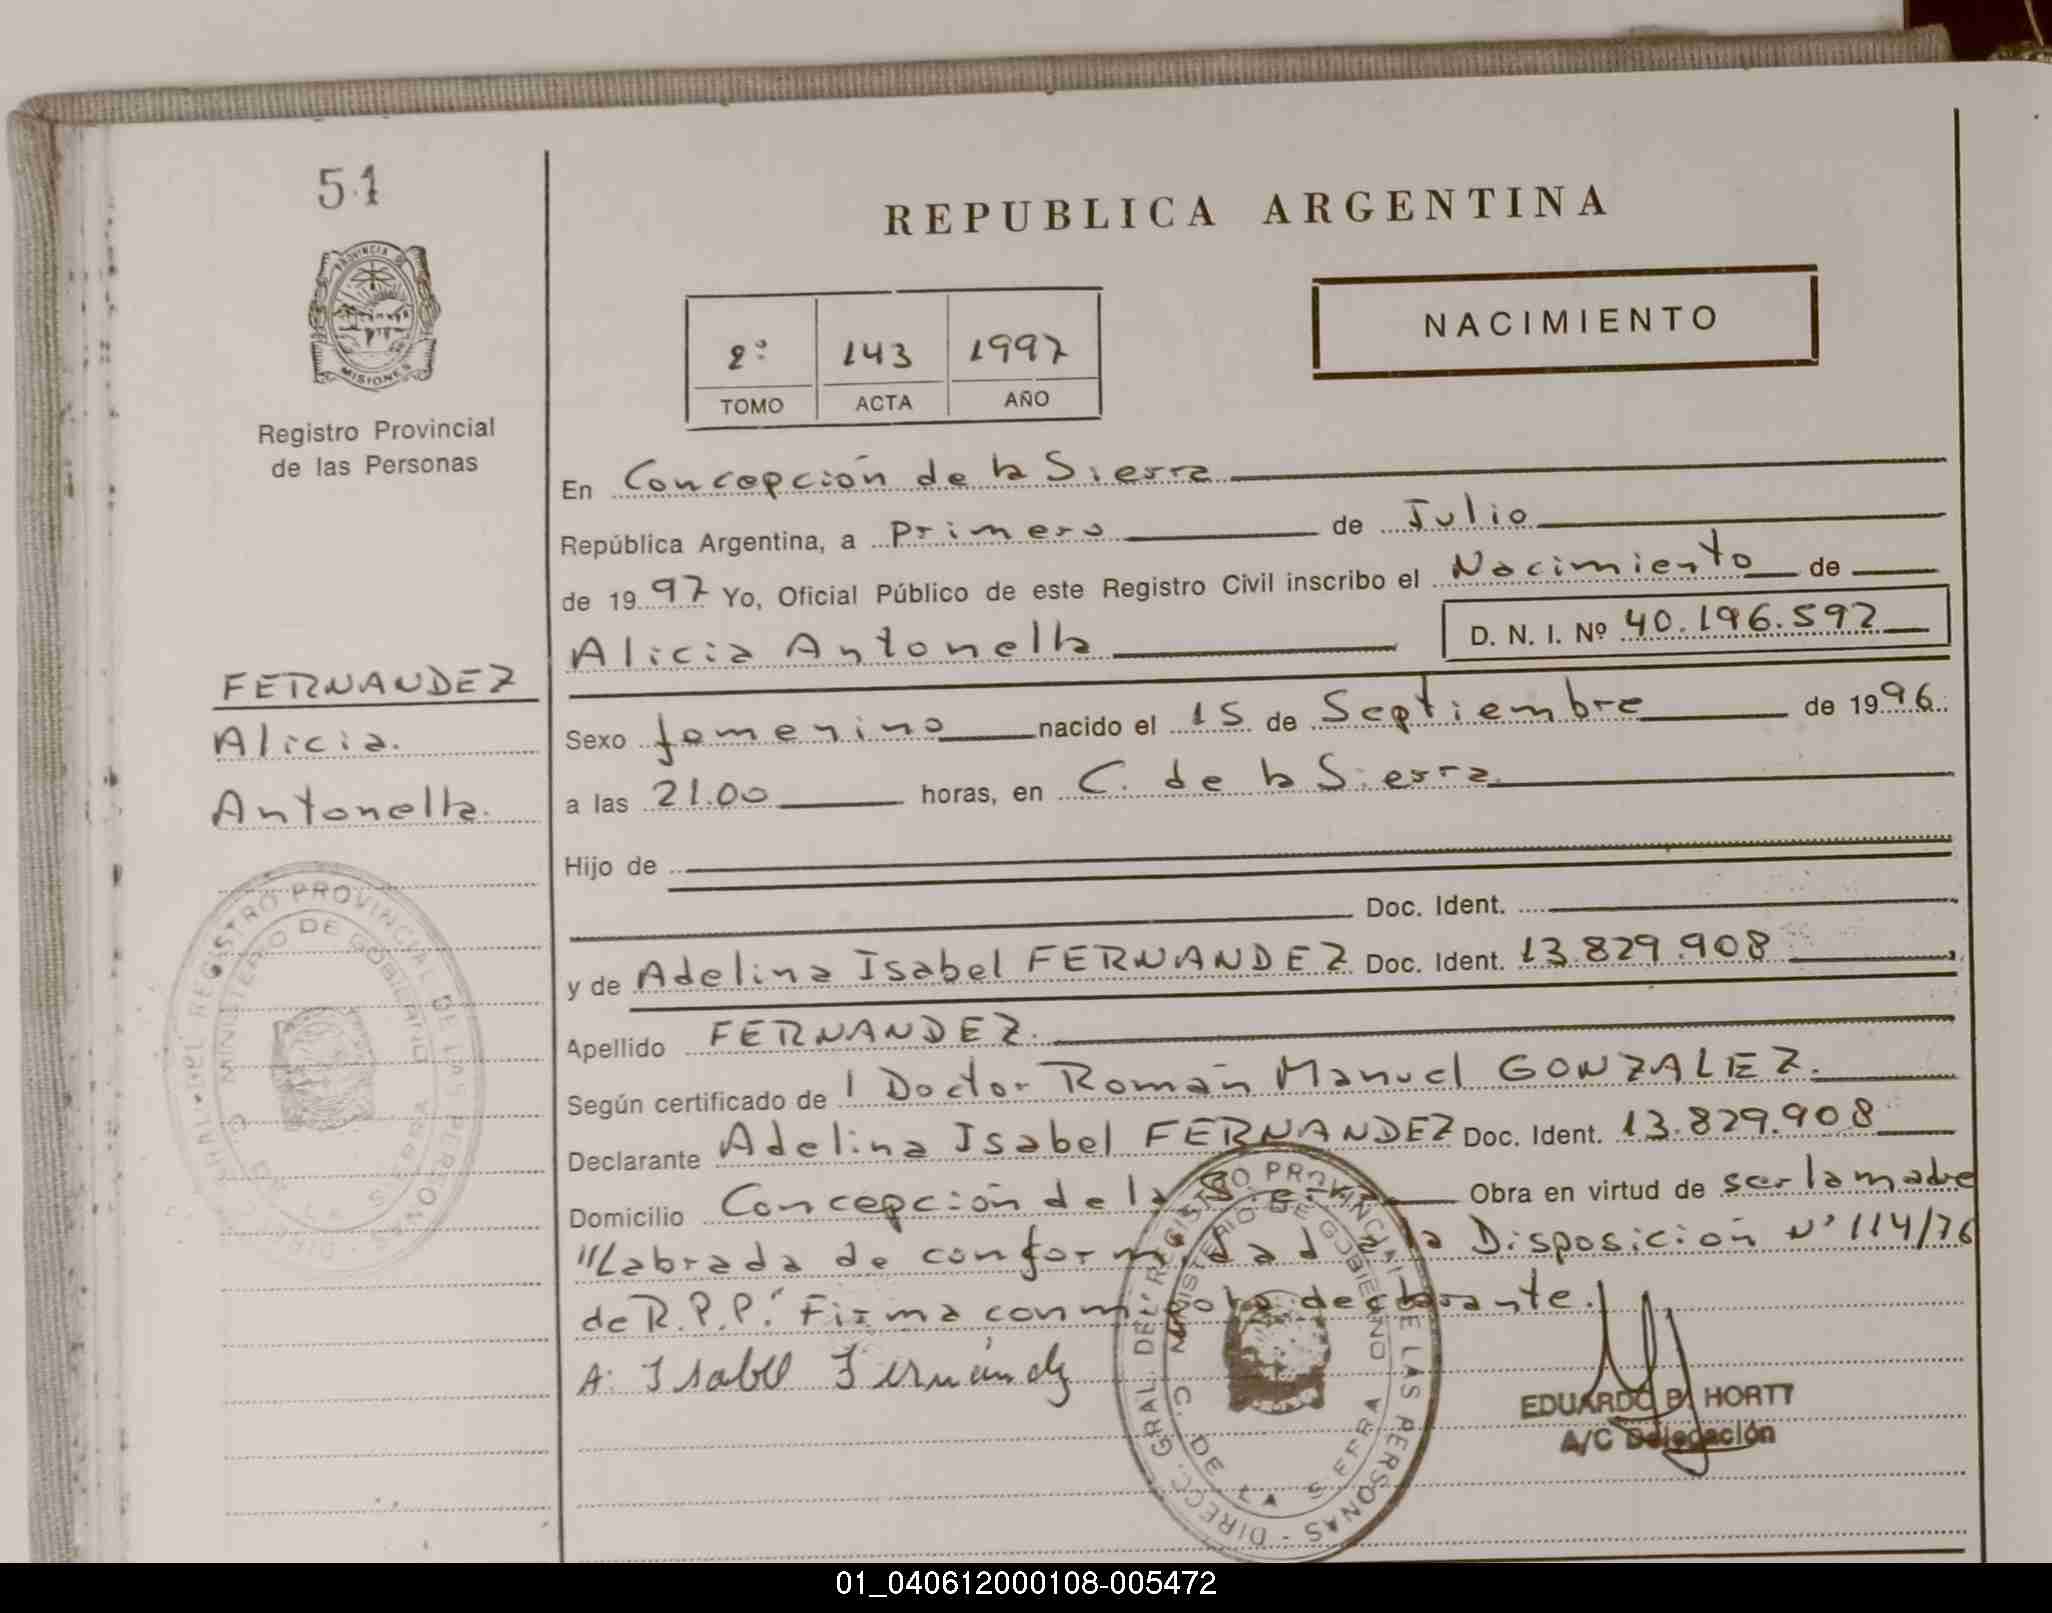 51
REPUBLICA ARGENTINA
PROVINCIA DE
MISIONES
Registro Provincial
de las Personas
2º 143 1997
TOMO ACTA AÑO
NACIMIENTO
En Concepción de la Sierra
República Argentina, a Primero de Julio
de 1997 Yo, Oficial Público de este Registro Civil inscribo el Nacimiento de
Alicia Antonella D. N. I. Nº 40.196.592
FERNANDEZ
Alicia.
Antonella.
Sexo femenino nacido el 15 de Septiembre de 1996.
a las 21.00 horas, en C. de la Sierra
Hijo de
Doc. Ident.
y de Adelina Isabel FERNANDEZ Doc. Ident. 13.829.908
Apellido FERNANDEZ.
Según certificado de l Doctor Román Manuel GONZALEZ.
Declarante Adelina Isabel FERNANDEZ Doc. Ident. 13.829.908
Domicilio Concepción de la Sierra Obra en virtud de ser la madre
"Labrada de conformidad a la Disposición Nº 114/76
de R.P.P." Firma con migo la declarante.
A. Isabel Fernández
DIRECC. GRAL. DEL REGISTRO PROVINCIAL DE LAS PERSONAS
MINISTERIO DE GOBIERNO
C. DE LA SIERRA
DIRECC. GRAL. DEL REGISTRO PROVINCIAL DE LAS PERSONAS
MINISTERIO DE GOBIERNO
C. DE LA SIERRA
EDUARDO B. HORTT
A/C Delegación
01_040612000108-005472